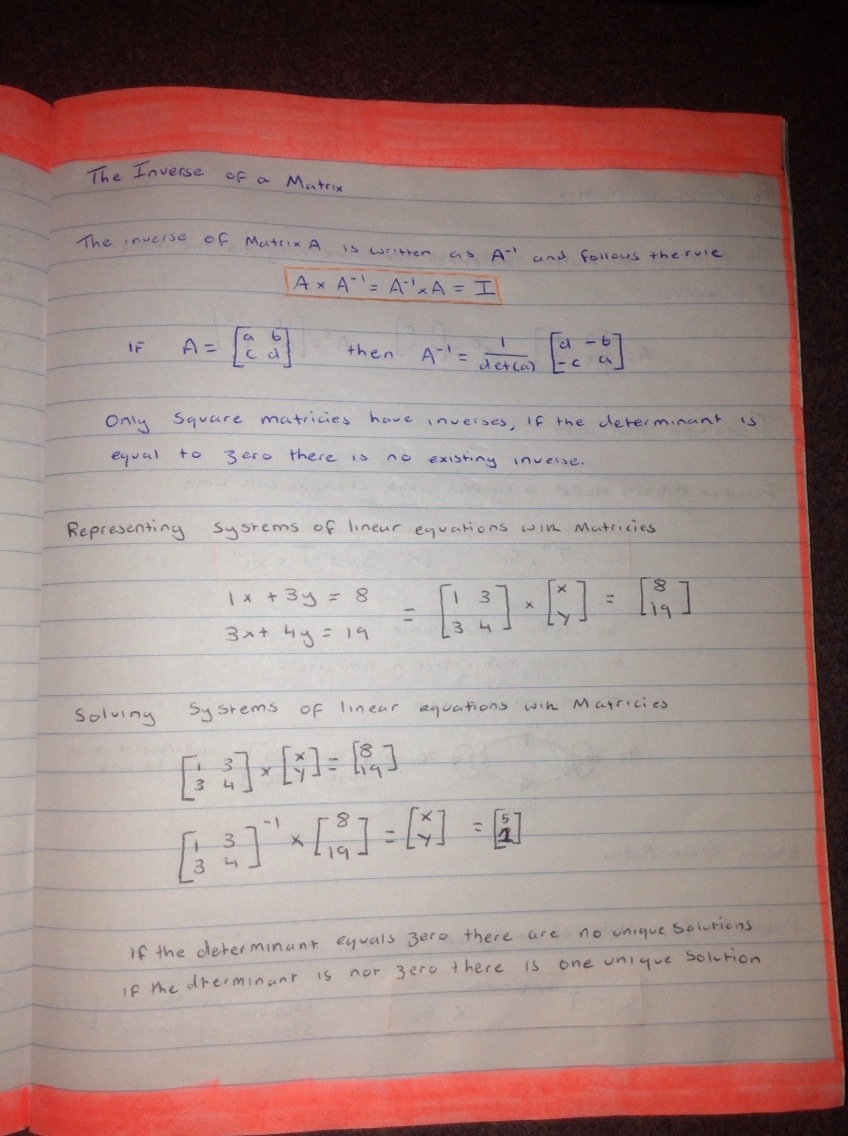 The Inverse of a Matrix
The inverse of Matrix A is written as A⁻¹ and follows the rule
A × A⁻¹ = A⁻¹ × A = I
IF A = [a b; c d] then A⁻¹ = 1/det(a) [d -b; -c a]
Only Square matricies have inverses, if the determinant is
equal to zero there is no existing inverse.
Representing Systems of linear equations with Matricies
1x + 3y = 8
3x + 4y = 19
= [1 3; 3 4] × [x; y] = [8; 19]
Solving Systems of linear equations with Matricies
[1 3; 3 4] × [x; y] = [8; 19]
[1 3; 3 4]⁻¹ × [8; 19] = [x; y] = [5; 1]
if the determinant equals zero there are no unique solutions
if the dterminant is not zero there is one unique solution